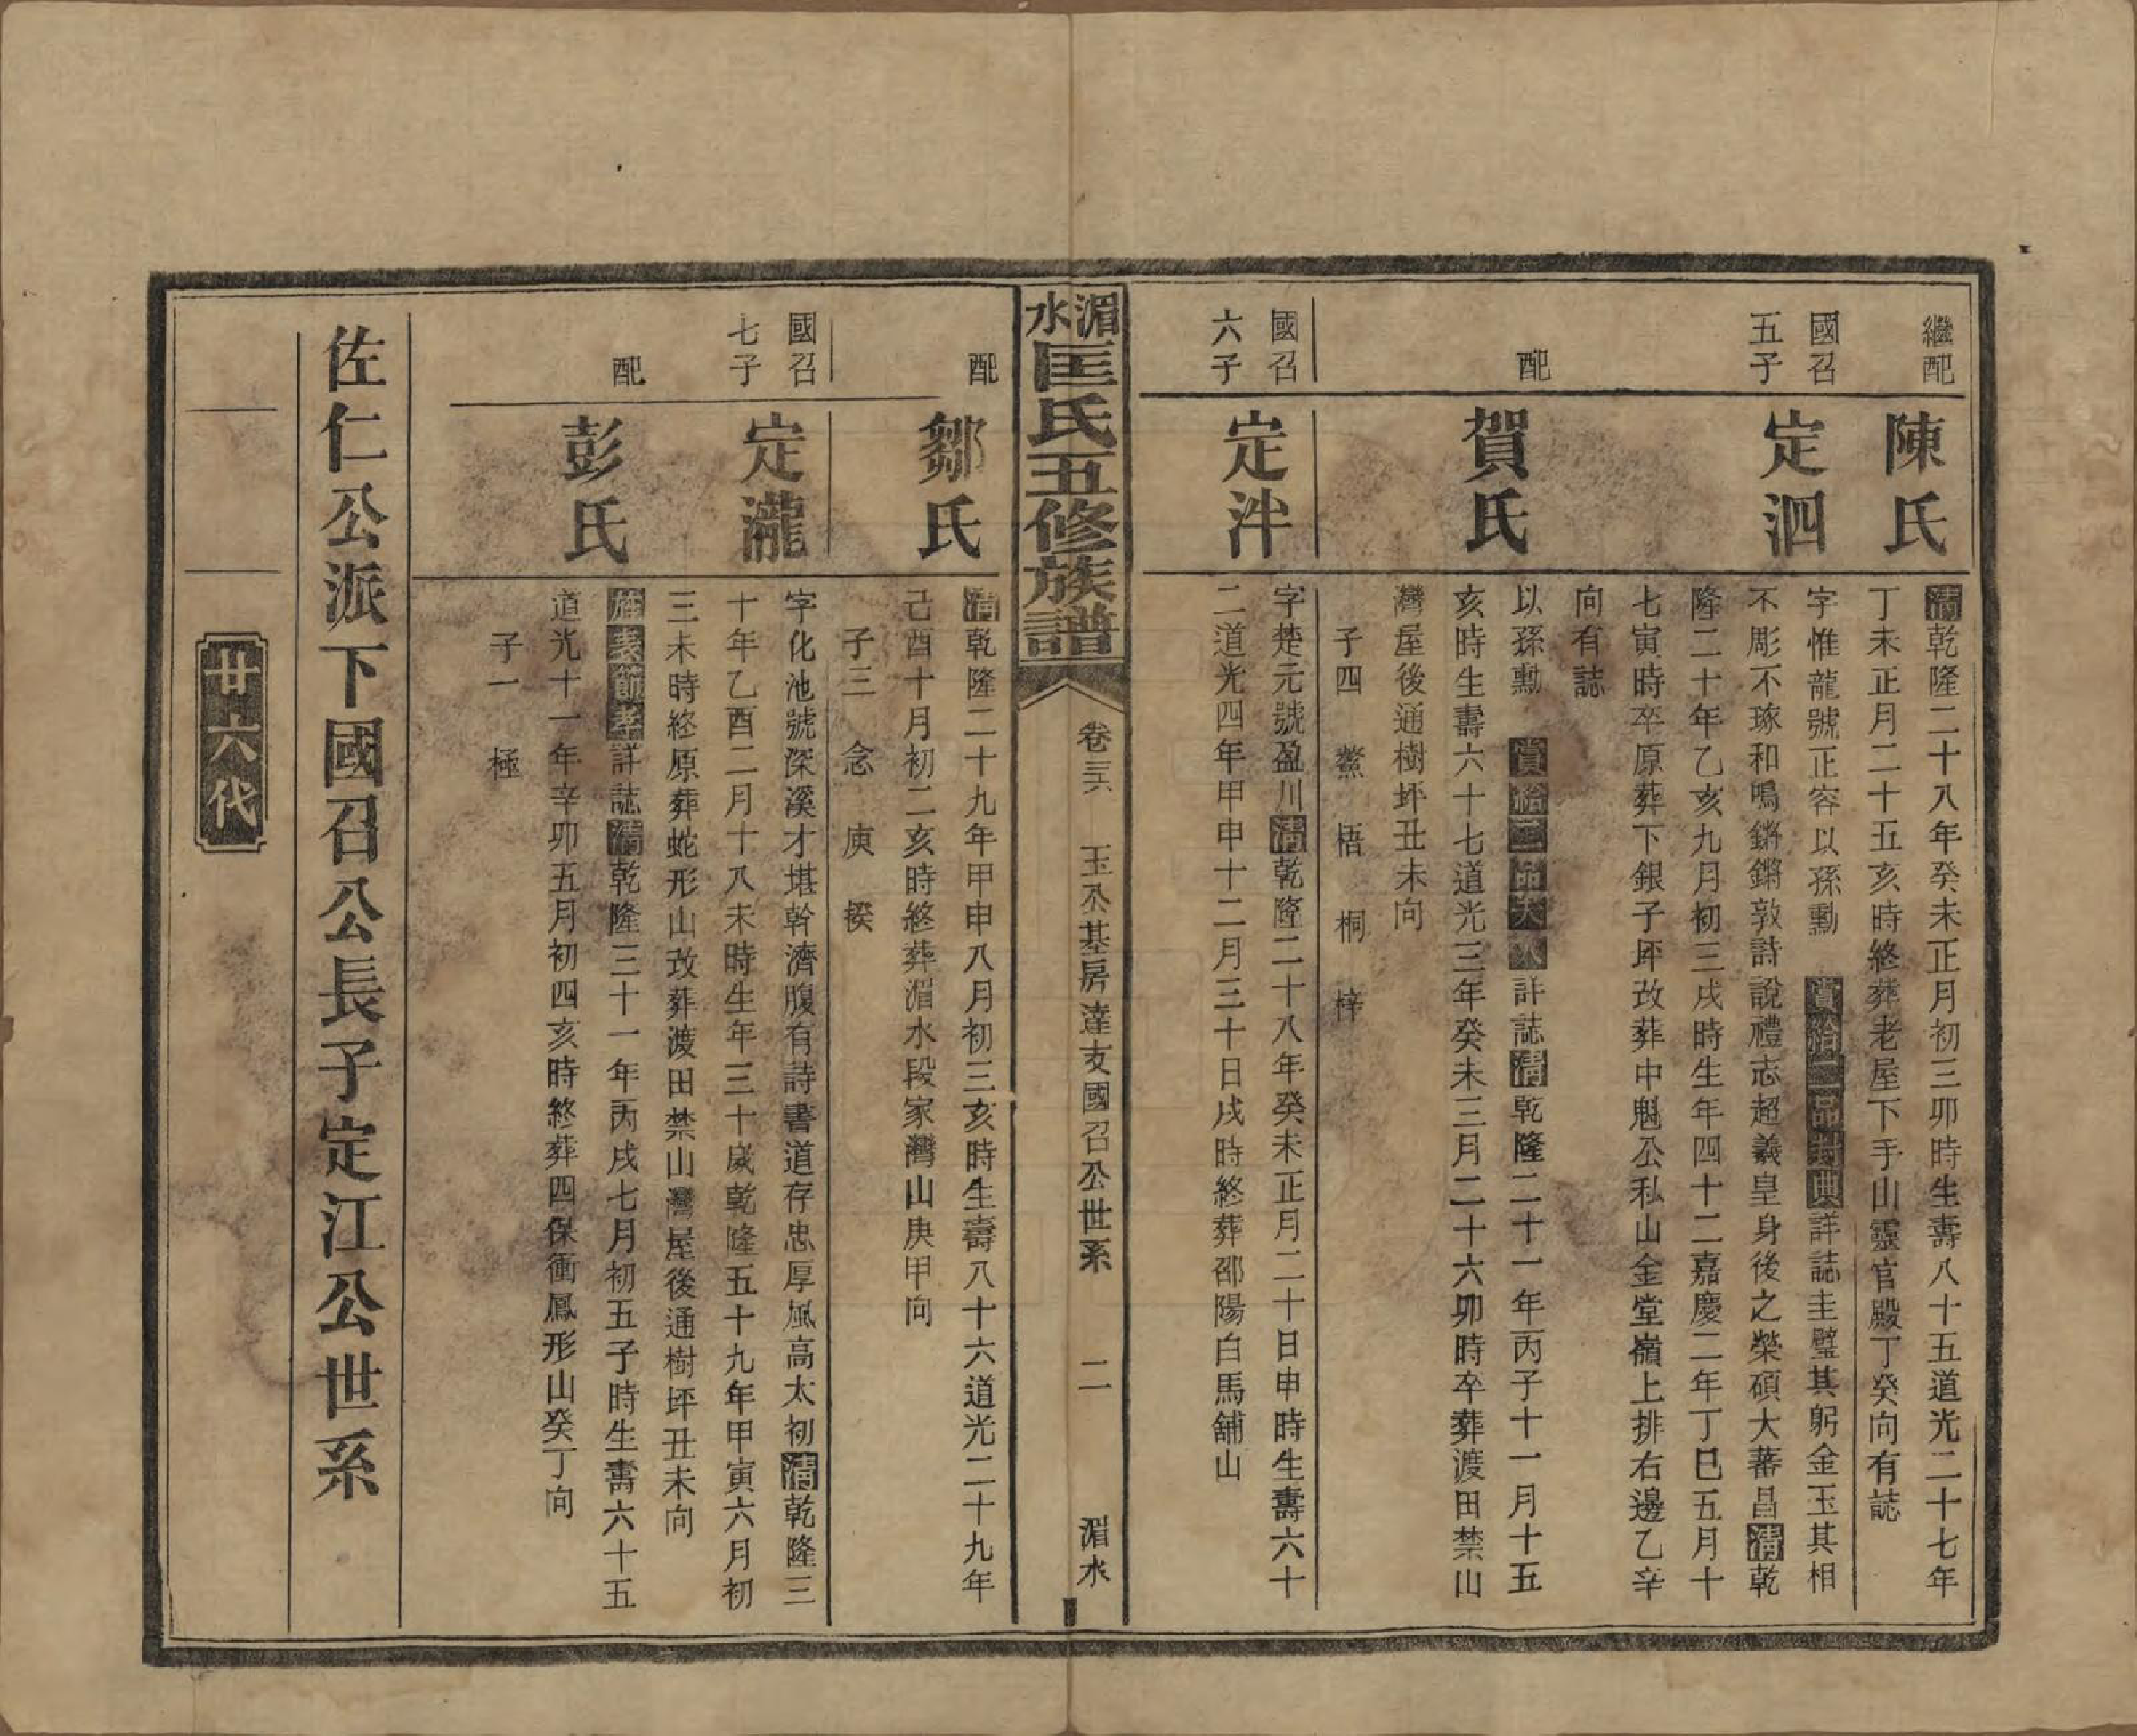 繼配
陳氏
清乾隆二十八年癸未正月初三卯時生壽八十五道光二十七年
丁未正月二十五亥時終葬老屋下手山靈官殿丁癸向有誌
國召
五子
定泗
字惟龍號正容以孫勳　賞給二品封典詳誌圭璧其躬金玉其相
不彫不琢和鳴鏘鏘敦詩說禮志超義皇身後之榮碩大蕃昌清乾
隆二十年乙亥九月初三戌時生年四十二嘉慶二年丁巳五月十
七寅時卒原葬下銀子坪改葬中魁公私山金堂嶺上排右邊乙辛
向有誌
配
賀氏
以孫勳　賞給二品夫人詳誌清乾隆二十一年丙子十一月十五
亥時生壽六十七道光三年癸未三月二十六卯時卒葬渡田禁山
灣屋後通樹坪丑未向
子四　鰲　梧　桐　梓
國召
六子
定泮
字楚元號盈川清乾隆二十八年癸未正月二十日申時生壽六十
二道光四年甲申十二月三十日戌時終葬邵陽白馬舖山
湄水匡氏五修族譜
卷三六　玉公基房達支國召公世系　二　湄水
配
鄒氏
清乾隆二十九年甲申八月初三亥時生壽八十六道光二十九年
己酉十月初二亥時終葬湄水段家灣山庚甲向
子三　念　庾　揆
國召
七子
定瀧
字化池號深溪才堪幹濟腹有詩書道存忠厚風高太初清乾隆三
十年乙酉二月十八未時生年三十歲乾隆五十九年甲寅六月初
三未時終原葬蛇形山改葬渡田禁山灣屋後通樹坪丑未向
配
彭氏
旌表節孝詳誌清乾隆三十一年丙戌七月初五子時生壽六十五
道光十一年辛卯五月初四亥時終葬四保衝鳳形山癸丁向
子一　極
佐仁公派下國召公長子定江公世系
廿六代